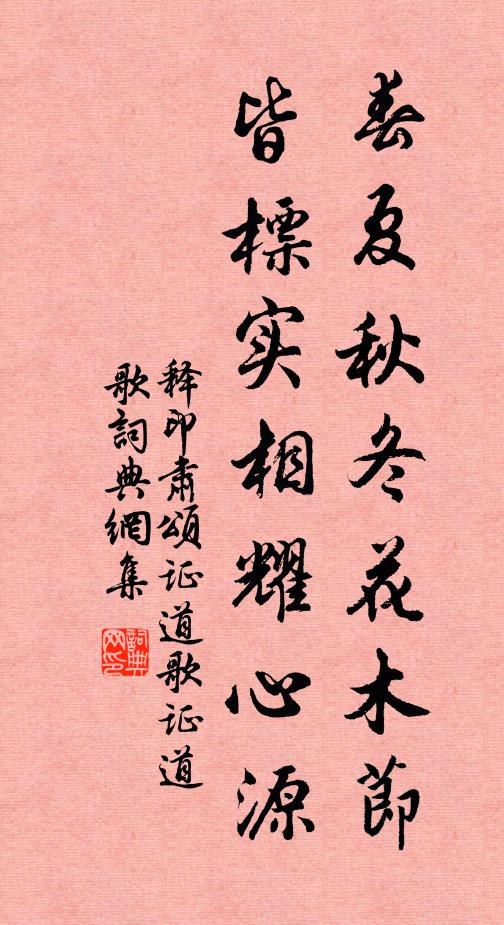 春夏秋冬花木節
皆標实相耀心源
释印肃頌证道歌证道
歌詞典網集
詞典
网印